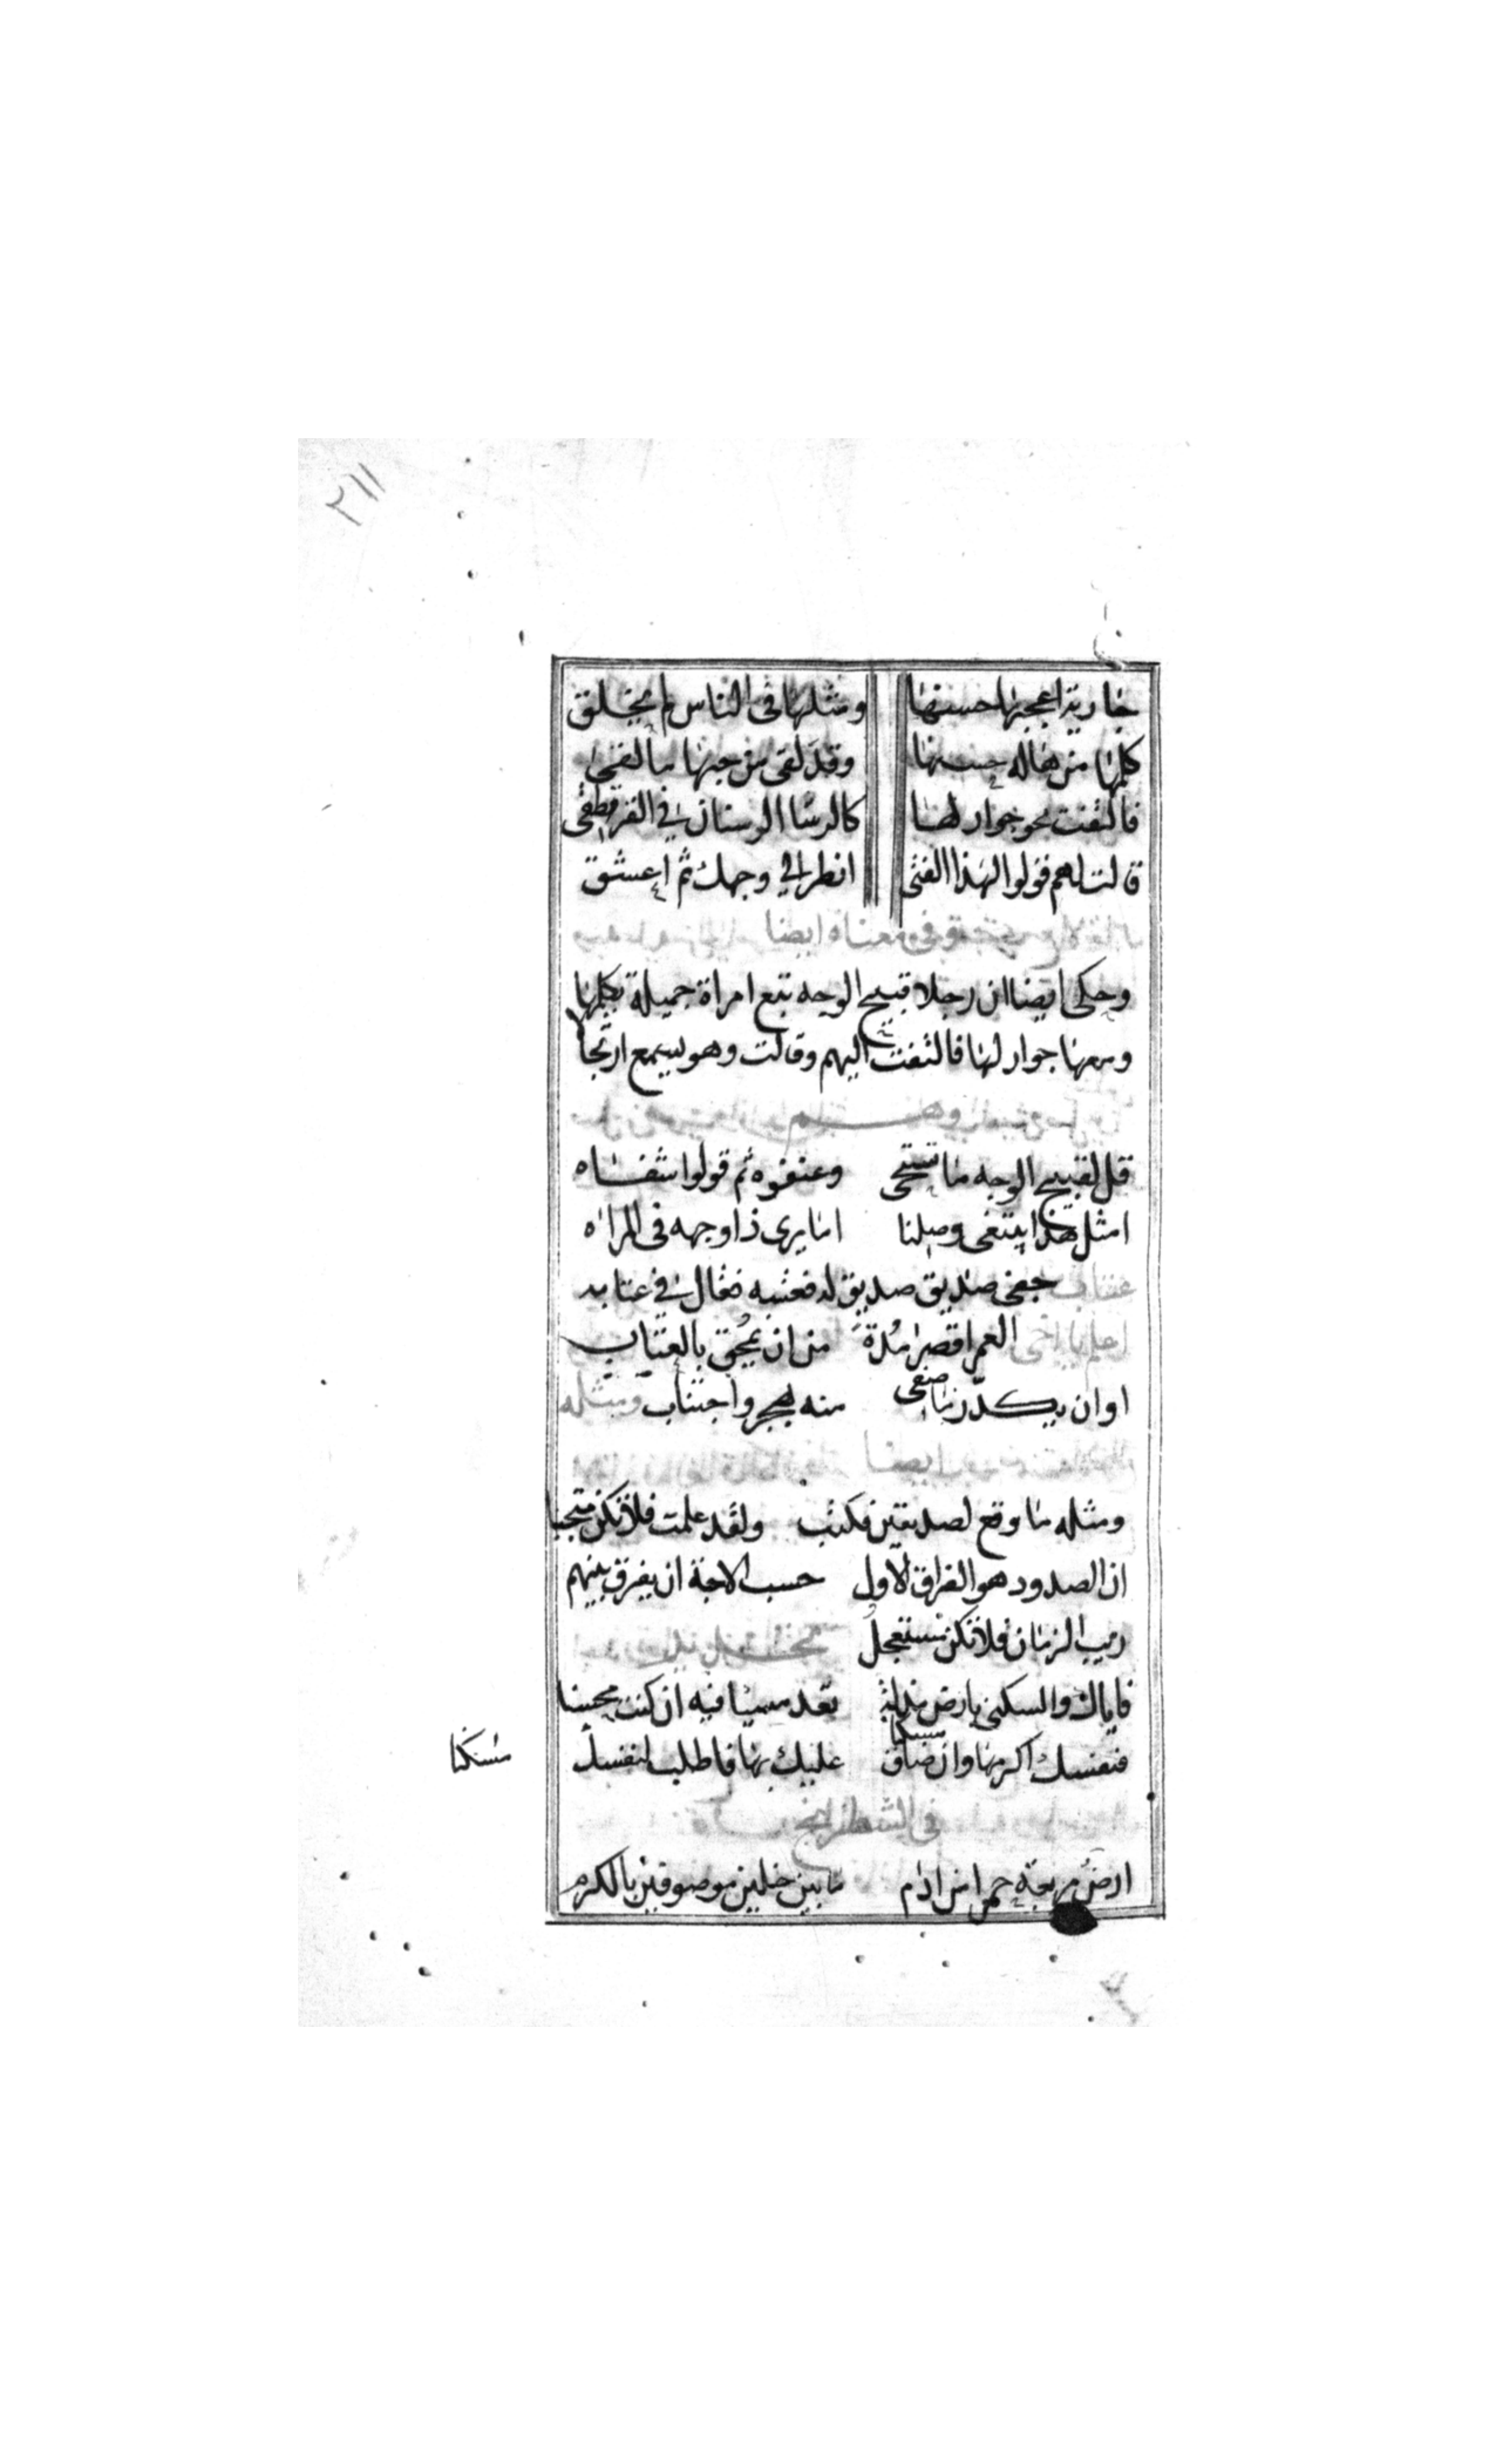 ٢١١
جارية اعجبها حسنها ومثلها في الناس لم يخلق
كلمها من هاله حسنها وقد لقى من حبها ما لقى
فالتفت نحو جوار لها كالرشا الوسنان في القرطق
قالت لهم قولوا لهذا الفتى انظر الى وجهك ثم اعشق
وفي معناه ايضا
وحكى ايضا ان رجلا قبيح الوجه تبع امراة جميلة يكلمها
ومعها جوار لها فالتفت اليهم وقالت وهو يسمع ارتجا
قل لقبيح الوجه ما تستحى وعنفوه ثم قولوا شفاه
امثل هذا يبتغى وصلنا اما يرى ذا وجهه في المراه
عتاب جفى صديق صديق له فعتبه فقال في عتابه
العمر اقصر مدة من ان يمحق بالعتاب
او ان يكدر ما صفى منه بهجر واجتناب ومثله
ايضا
ومثله ما وقع لصديقين فكتب ولقد علمت فلا تكن متجنيا
ان الصدود هو الفراق الاول حسب الاحبة ان يفرق بينهم
ريب الزمان فلا تكن مستعجل
فاياك والسكنى بارض مذلة تعد مسيئا فيه ان كنت محسنا
فنفسك اكرمها وان ضاق مسكنا عليك بها فاطلب لنفسك
مسكنا
في الشطرنج
ارض مربعة حمرا من ادم ما بين خلين موصوفين بالكرم